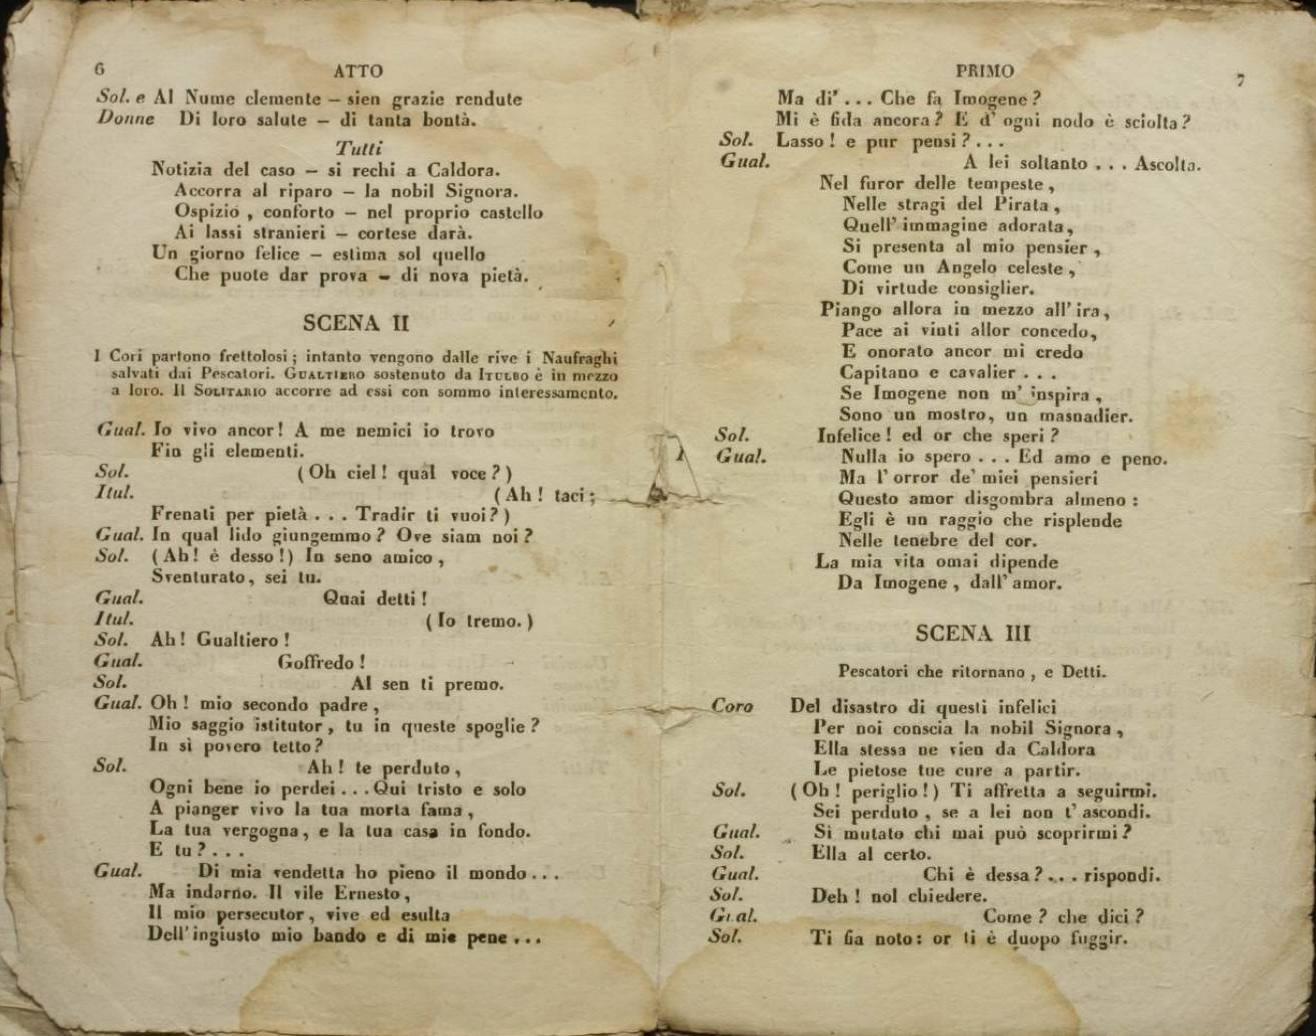 6
ATTO
Sol. e Al Nume clemente — sien grazie rendute
Donne Di loro salute — di tanta bontà.
Tutti
Notizia del caso — si rechi a Caldora.
Accorra al riparo — la nobil Signora.
Ospizio , conforto — nel proprio castello
Ai lassi stranieri — cortese darà.
Un giorno felice — estima sol quello
Che puote dar prova — di nova pietà.
SCENA II
I Cori partono frettolosi ; intanto vengono dalle rive i Naufraghi
salvati dai Pescatori. GUALTIERO sostenuto da ITULBO è in mezzo
a loro. Il SOLITARIO accorre ad essi con sommo interessamento.
Gual. Io vivo ancor! A me nemici io trovo
Fin gli elementi.
Sol. ( Oh ciel ! qual voce ? )
Itul. ( Ah ! taci ;
Frenati per pietà . . . Tradir ti vuoi ? )
Gual. In qual lido giungemmo ? Ove siam noi ?
Sol. ( Ah ! è desso ! ) In seno amico ,
Sventurato, sei tu.
Gual. Quai detti !
Itul. ( Io tremo. )
Sol. Ah ! Gualtiero !
Gual. Goffredo !
Sol. Al sen ti premo.
Gual. Oh ! mio secondo padre ,
Mio saggio istitutor , tu in queste spoglie ?
In sì povero tetto ?
Sol. Ah ! te perduto ,
Ogni bene io perdei . . . Qui tristo e solo
A pianger vivo la tua morta fama ,
La tua vergogna, e la tua casa in fondo.
E tu ? . . .
Gual. Di mia vendetta ho pieno il mondo . . .
Ma indarno. Il vile Ernesto ,
Il mio persecutor , vive ed esulta
Dell'ingiusto mio bando e di mie pene . . .
PRIMO
7
Ma di' . . . Che fa Imogene ?
Mi è fida ancora ? E d' ogni nodo è sciolta ?
Sol. Lasso ! e pur pensi ? . . .
Gual. A lei soltanto . . . Ascolta.
Nel furor delle tempeste ,
Nelle stragi del Pirata ,
Quell' immagine adorata,
Si presenta al mio pensier ,
Come un Angelo celeste ,
Di virtude consiglier.
Piango allora in mezzo all' ira,
Pace ai vinti allor concedo,
E onorato ancor mi credo
Capitano e cavalier . . .
Se Imogene non m' inspira ,
Sono un mostro, un masnadier.
Sol. Infelice ! ed or che speri ?
Gual. Nulla io spero . . . Ed amo e peno.
Ma l' orror de' miei pensieri
Questo amor disgombra almeno :
Egli è un raggio che risplende
Nelle tenebre del cor.
La mia vita omai dipende
Da Imogene , dall' amor.
SCENA III
Pescatori che ritornano , e Detti.
Coro Del disastro di questi infelici
Per noi conscia la nobil Signora ,
Ella stessa ne vien da Caldora
Le pietose tue cure a partir.
Sol. ( Oh ! periglio ! ) Ti affretta a seguirmi.
Sei perduto , se a lei non t' ascondi.
Gual. Sì mutato chi mai può scoprirmi ?
Sol. Ella al certo.
Gual. Chi è dessa ? . . . rispondi.
Sol. Deh ! nol chiedere.
Gual. Come ? che dici ?
Sol. Ti fia noto : or ti è duopo fuggir.